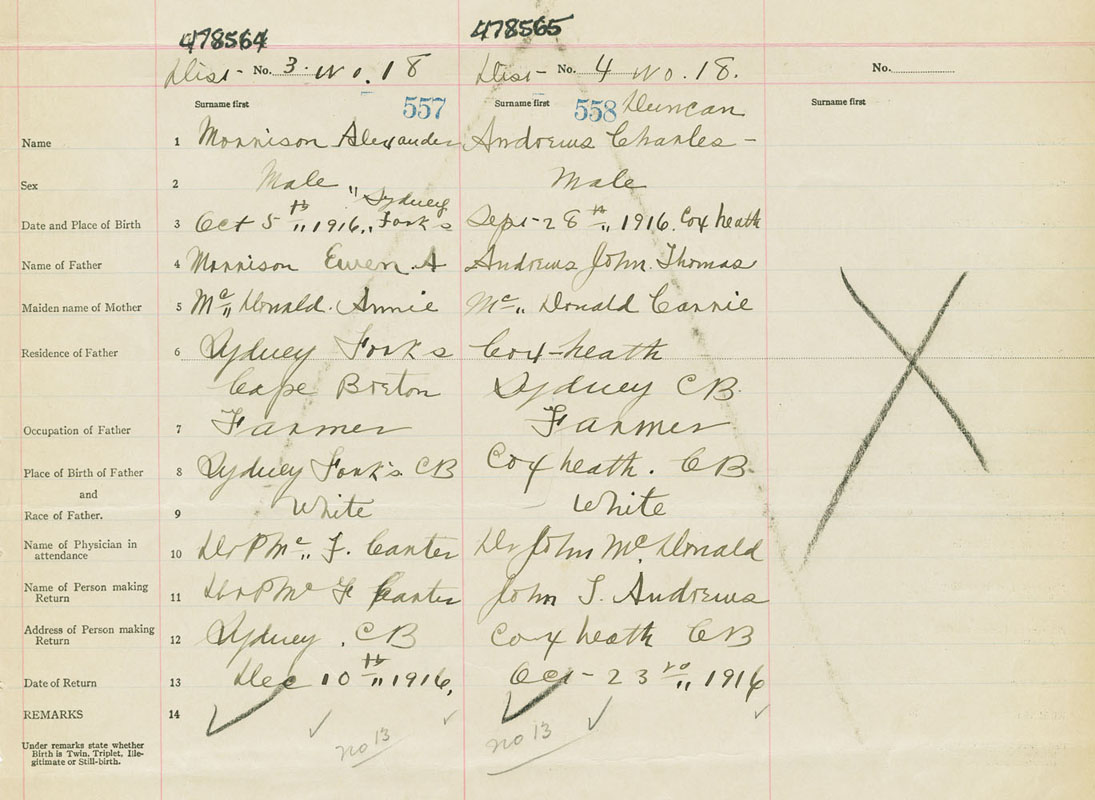 478564 478565
Dist- No. 3 No. 18 Dist- No. 4 No. 18. No.
Surname first 557 Surname first 558 Duncan Surname first
Name 1 Morrison Alexander Andrews Charles -
Sex 2 Male Male
" Sydney
Date and Place of Birth 3 Oct 5th, 1916, Forks Sept-28th, 1916. Coxheath
Name of Father 4 Morrison Ewen A Andrews John Thomas
Maiden name of Mother 5 Mc Donald. Annie Mc Donald Carrie
Residence of Father 6 Sydney Forks Cox-heath
Cape Breton Sydney CB.
Occupation of Father 7 Farmer Farmer
Place of Birth of Father 8 Sydney Forks CB Coxheath. CB.
and
Race of Father. 9 White White
Name of Physician in
attendance 10 Dr P Mc F. Carter Dr John McDonald
Name of Person making
Return 11 Dr P Mc F Carter John T. Andrews
Address of Person making
Return 12 Sydney, CB Coxheath CB
Date of Return 13 Dec 10th 1916, Oct-23rd, 1916
REMARKS 14
no 13 no 13
Under remarks state whether
Birth is Twin, Triplet, Ille-
gitimate or Still-birth.